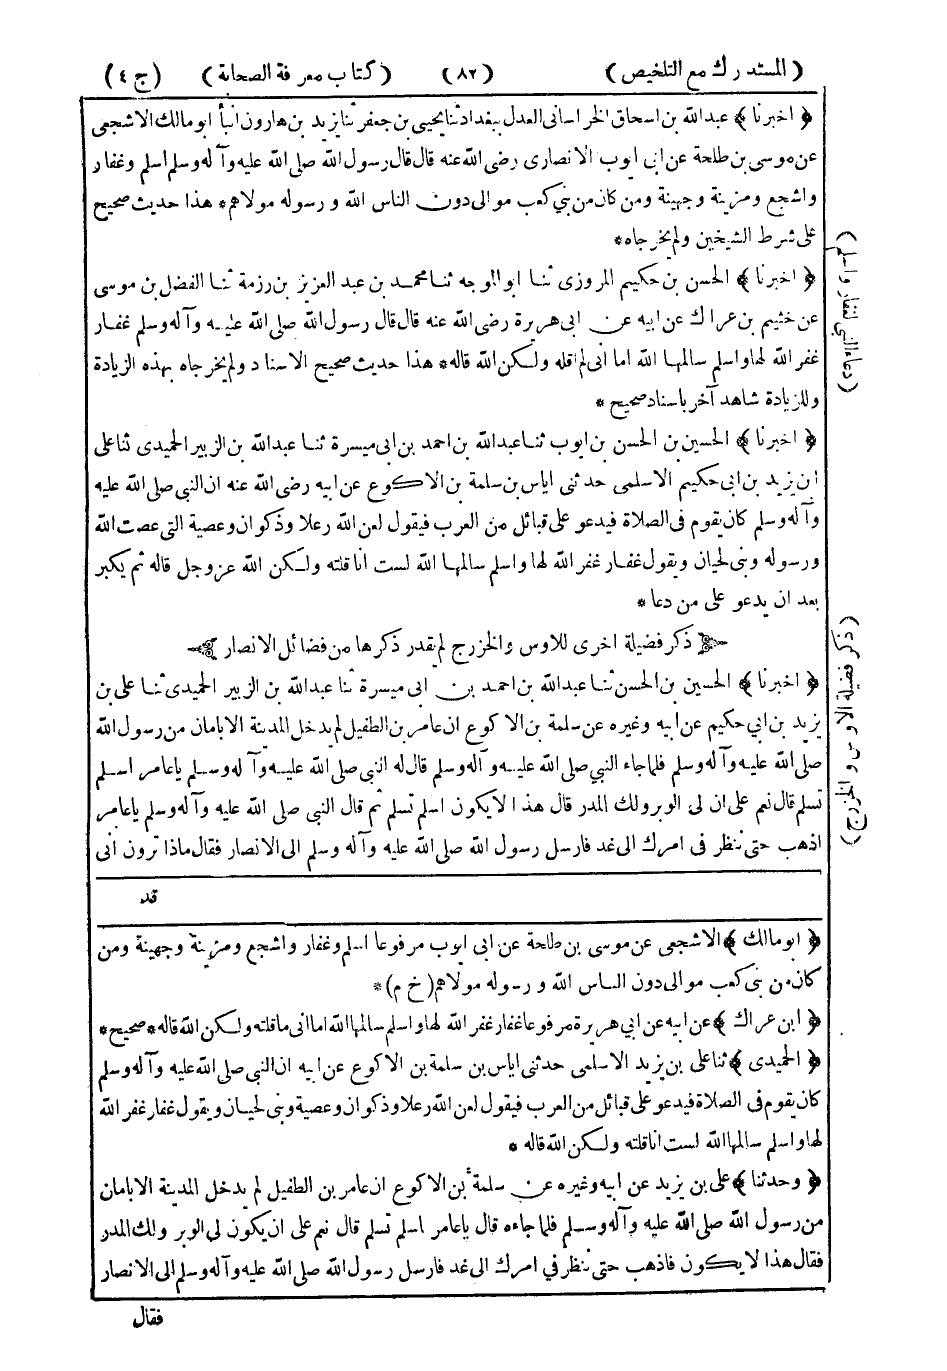 (المستدرك مع التلخيص) (٨٢) (كتاب معرفة الصحابة) (ج ٤)
﴿ اخبرنا ﴾ عبدالله بن اسحاق الخراسانى العدل ببغداد ثنا يحيى بن جعفر ثنا يزيد بن هارون انبأ ابومالك الاشجعى
عن موسى بن طلحة عن ابى ايوب الانصارى رضى الله عنه قال قال رسول الله صلى الله عليه وآله وسلم اسلم وغفار
واشجع ومزينة وجهينة ومن كان من بنى كعب موالى دون الناس الله ورسوله مولاهم * هذا حديث صحيح
على شرط الشيخين ولم يخرجاه *
﴿ اخبرنا ﴾ الحسن بن حكيم المروزى ثنا ابو الموجه ثنا محمد بن عبد العزيز بن رزمة ثنا الفضل بن موسى
عن خثيم بن عراك عن ابيه عن ابى هريرة رضى الله عنه قال قال رسول الله صلى الله عليه وآله وسلم غفار
غفر الله لها واسلم سالمها الله اما انى لم اقله ولكن الله قاله * هذا حديث صحيح الاسناد ولم يخرجاه بهذه الزيادة
وللزيادة شاهد آخر باسناد صحيح *
﴿ اخبرنا ﴾ الحسين بن الحسن بن ايوب ثنا عبدالله بن احمد بن ابى ميسرة ثنا عبدالله بن الزبير الحميدى ثنا على
ابن يزيد بن ابى حكيم الاسلمى حدثنى اياس بن سلمة بن الاكوع عن ابيه رضى الله عنه ان النبى صلى الله عليه
وآله وسلم كان يقوم فى الصلاة فيدعو على قبائل من العرب فيقول لعن الله رعلا وذكوان وعصية التى عصت الله
ورسوله وبنى لحيان ويقول غفار غفر الله لها واسلم سالمها الله لست انا قلته ولكن الله عزوجل قاله ثم يكبر
بعد ان يدعو على من دعا *
ذكر فضيلة اخرى للاوس والخزرج لم يقدر ذكرها من فضائل الانصار
﴿ اخبرنا ﴾ الحسين بن الحسن ثنا عبدالله بن احمد بن ابى ميسرة ثنا عبدالله بن الزبير الحميدى ثنا على بن
يزيد بن ابى حكيم عن ابيه وغيره عن سلمة بن الاكوع ان عامر بن الطفيل لم يدخل المدينة الا بامان من رسول الله
صلى الله عليه وآله وسلم فلما جاء النبى صلى الله عليه وآله وسلم قال له النبى صلى الله عليه وآله وسلم ياعامر اسلم
تسلم قال نعم على ان لى الوبر ولك المدر قال هذا لا يكون اسلم تسلم ثم قال النبى صلى الله عليه وآله وسلم ياعامر
اذهب حتى ننظر فى امرك الى غد فارسل رسول الله صلى الله عليه وآله وسلم الى الانصار فقال ماذا ترون انى
قد
(دعاء النبى لغفار واسلم)
(ذكر فضيلة الاوس والخزرج)
﴿ ابومالك ﴾ الاشجعى عن موسى بن طلحة عن ابى ايوب مرفوعا اسلم وغفار واشجع ومزينة وجهينة ومن
كان من بنى كعب موالى دون الناس الله ورسوله مولاهم (خ م) *
﴿ ابن عراك ﴾ عن ابيه عن ابى هريرة مرفوعا غفار غفر الله لها واسلم سالمها الله اما انى ما قلته ولكن الله قاله * صحيح *
﴿ الحميدى ﴾ ثنا على بن يزيد الاسلمى حدثنى اياس بن سلمة بن الاكوع عن ابيه ان النبى صلى الله عليه وآله وسلم
كان يقوم فى الصلاة فيدعو على قبائل من العرب فيقول لعن الله رعلا وذكوان وعصية وبنى لحيان ويقول غفار غفر الله
لها واسلم سالمها الله لست انا قلته ولكن الله قاله *
﴿ وحدثنا ﴾ على بن يزيد عن ابيه وغيره عن سلمة بن الاكوع ان عامر بن الطفيل لم يدخل المدينة الا بامان
من رسول الله صلى الله عليه وآله وسلم فلما جاءه قال ياعامر اسلم تسلم قال نعم على ان يكون لى الوبر ولك المدر
فقال هذا لا يكون فاذهب حتى ننظر فى امرك الى غد فارسل رسول الله صلى الله عليه وآله وسلم الى الانصار
فقال